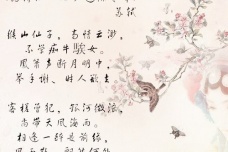 苏轼
缑山仙子，高情云渺，
不学痴牛騃女。
凤箫声断月明中，
举手谢、时人欲去
客槎曾犯，银河微浪，
尚带天风海雨。
相逢一醉是前缘，